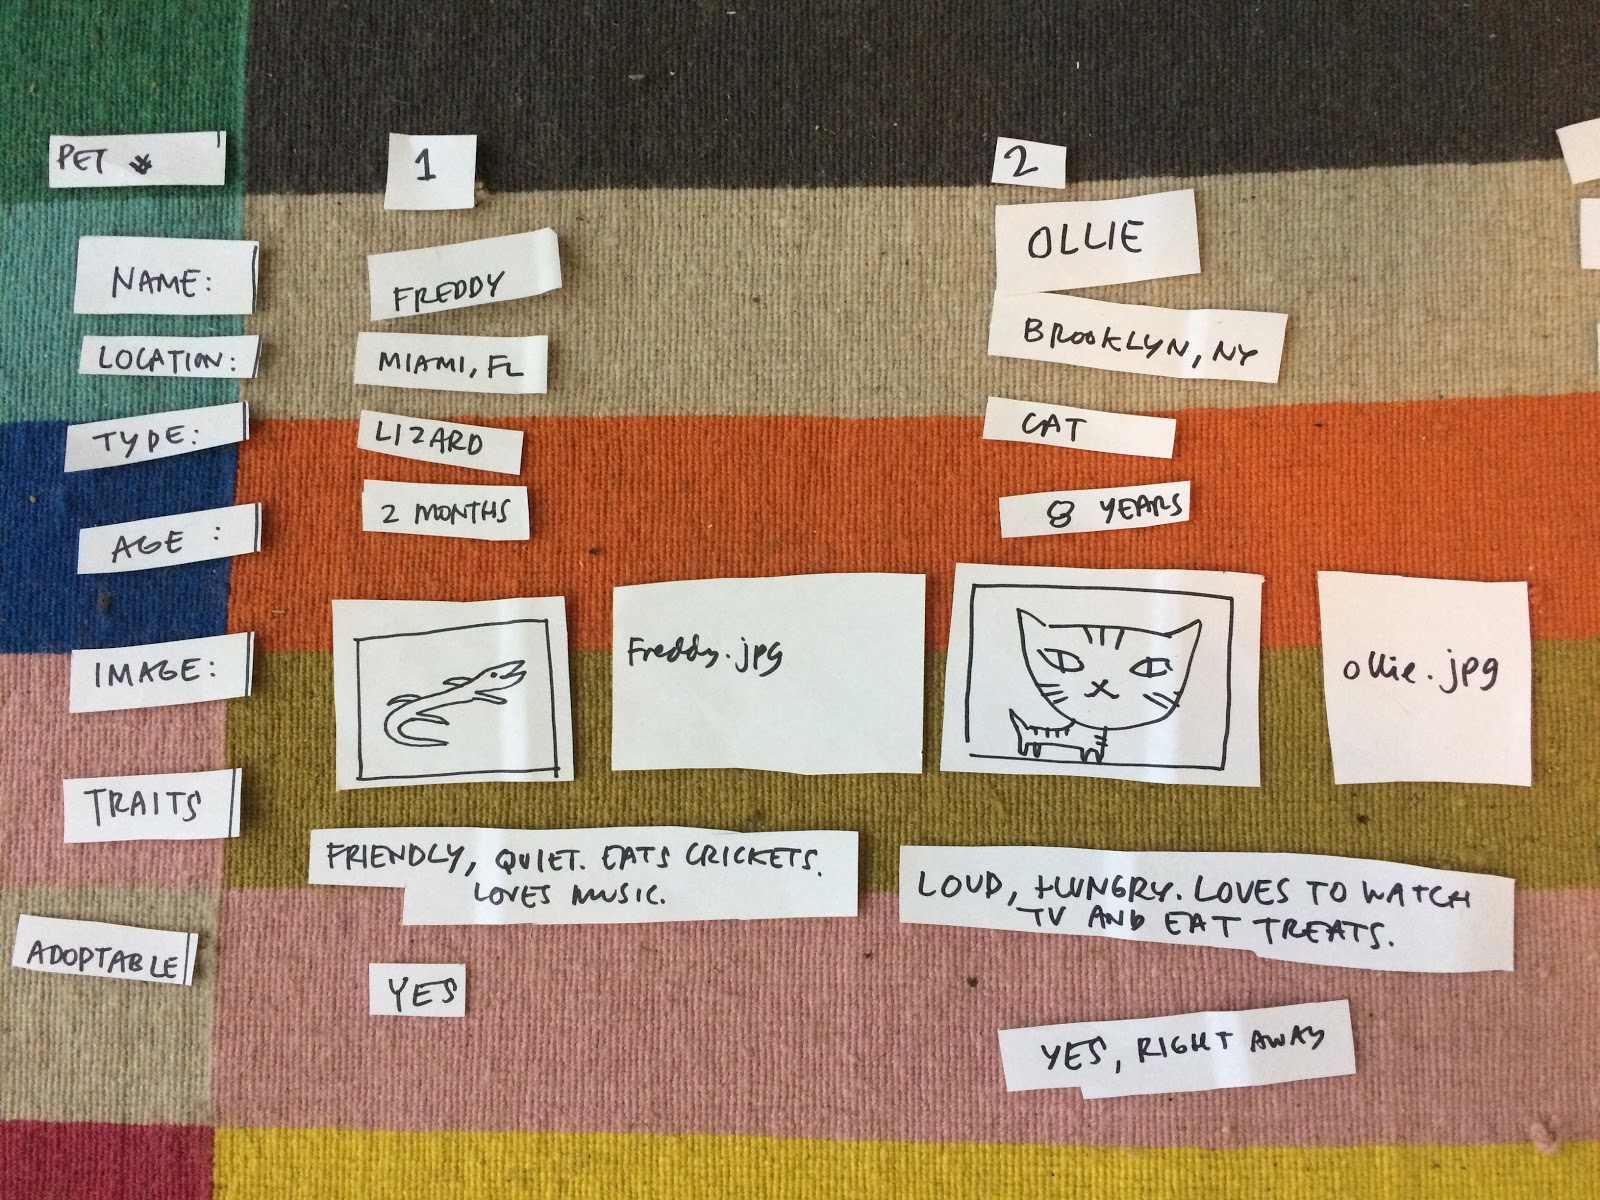 PET #
1
2
NAME:
FREDDY
OLLIE
LOCATION:
MIAMI, FL
BROOKLYN, NY
TYPE:
LIZARD
CAT
AGE :
2 MONTHS
8 YEARS
IMAGE:
Freddy.jpg
ollie.jpg
TRAITS
FRIENDLY, QUIET. EATS CRICKETS.
LOVES MUSIC.
LOUD, HUNGRY. LOVES TO WATCH
TV AND EAT TREATS.
ADOPTABLE
YES
YES, RIGHT AWAY